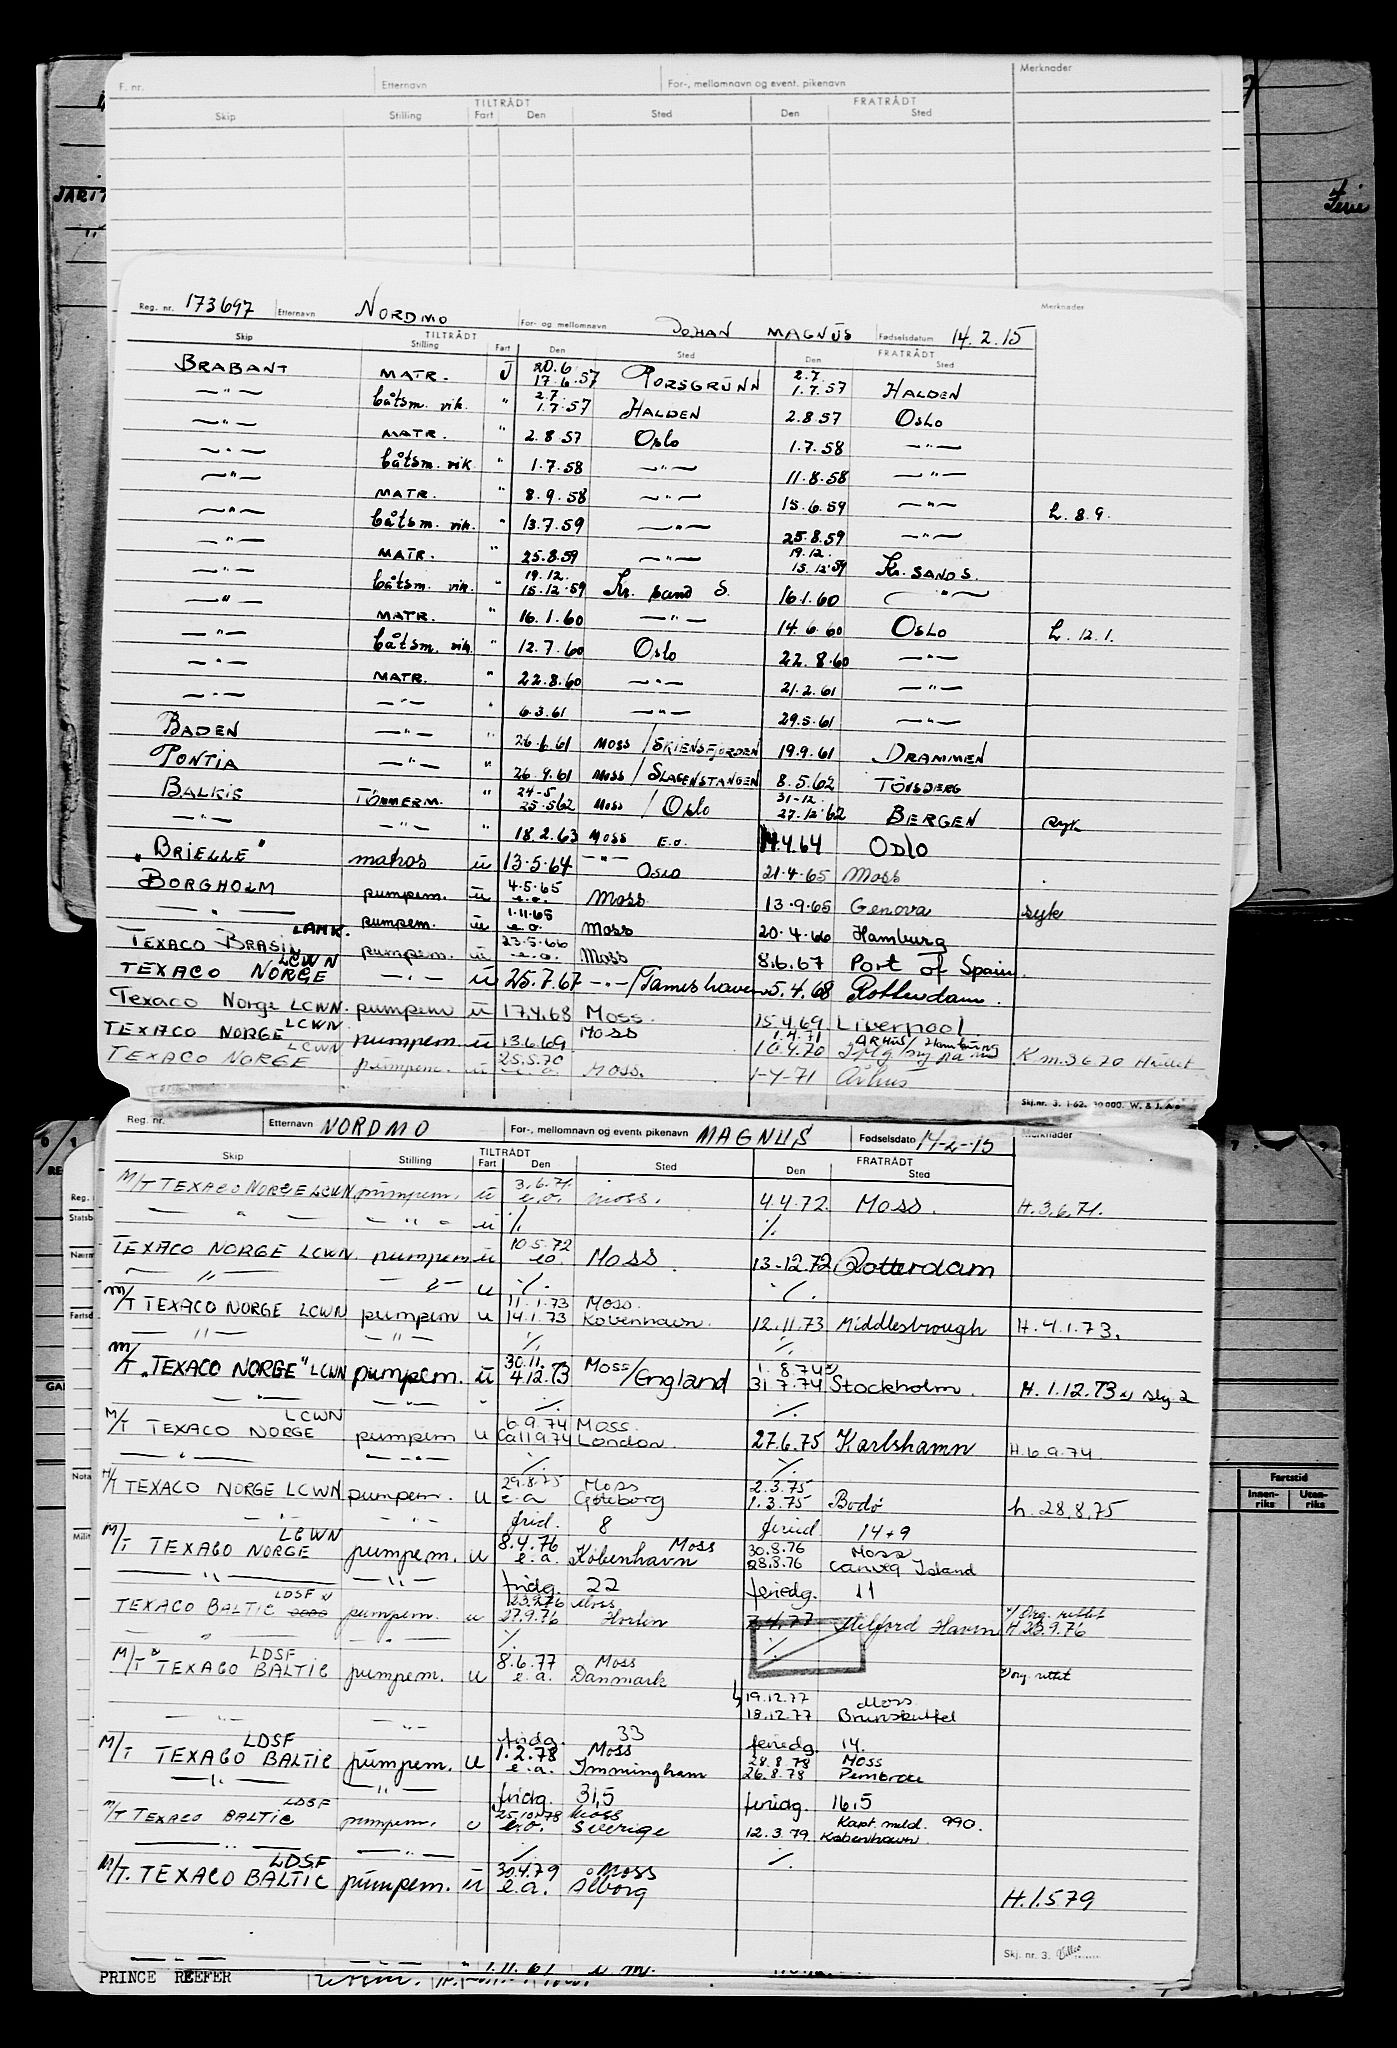 F. nr. Etternavn For-, mellomnavn og event. pikenavn Merknader
TILTRÅDT FRATRÅDT
Skip Stilling Fart Den Sted Den Sted
JARI
Ferie
Reg. nr. 173697 Etternavn NORDMO For- og mellomnavn JOHAN MAGNUS Fødselsdatum 14.2.15 Merknader
TILTRÅDT FRATRÅDT
Skip Stilling Fart Den Sted Den Sted
BRABANT MATR. U 20.6 17.6.57 PORSGRUNN 2.7. 1.7.57 HALDEN
—"— båtsm. vik. " 2.7. 1.7.57 HALDEN 2.8.57 OSLO
—"— MATR. " 2.8.57 Oslo 1.7.58 —"—
—"— båtsm. vik " 1.7.58 —"— 11.8.58 —"—
—"— MATR. " 8.9.58 —"— 15.6.59 —"— h. 8.9.
—"— båtsm. vik. " 13.7.59 —"— 25.8.59 —"—
—"— MATR. " 25.8.59 —"— 19.12. 15.12.59 Kr. SAND S.
—"— båtsm. vik. " 19.12. 15.12.59 Kr. sand S. 16.1.60 —"—
—"— MATR. " 16.1.60 —"— 14.6.60 OSLO h. 12.1.
—"— båtsm. vik. " 12.7.60 Oslo 22.8.60 —"—
—"— MATR. " 22.8.60 —"— 21.2.61 —"—
—"— —"— " 6.3.61 —"— 29.5.61 —"—
BADEN —"— " 26.6.61 MOSS / SKIENSFJORDEN 19.9.61 DRAMMEN
PONTIA —"— " 26.9.61 MOSS / SLAGENSTANGEN 8.5.62 TÖNSBERG
BALKIS TÖMMERM. " 24-5 25.5.62 MOSS / OSLO 31-12. 27.12.62 BERGEN syk
—"— —"— " 18.2.63 MOSS E.O. 14.4.64 OSLO
"BRIELLE" matros u 13.5.64 —"— Oslo 21.4.65 Moss
BORGHOLM pumpem. u 4.5.65 e.o. Moss 13.9.65 Genova syk
—"— pumpem. u 1.11.65 e.o. Moss 20.4.66 Hamburg
TEXACO BRASIL LAMK. pumpem. u 23.5.66 e.o. Moss 8.6.67 Port of Spain
TEXACO NORGE LCWN —"— u 25.7.67 —"—/Tameshaven 5.4.68 Rotterdam.
Texaco Norge LCWN. pumpem u 17.4.68 Moss. 15.4.69 Liverpool.
TEXACO NORGE LCWN pumpem u 13.6.69 Moss 10.4.70
TEXACO NORGE LCWN pumpem. u 25.5.70 e.o. Moss. 1-4-71 Århus
Skj.nr. 3. 1-62. 30 000. W. & J. A.s
Reg. nr. Etternavn NORDMO For-, mellomnavn og event. pikenavn MAGNUS Fødselsdato 14-2-15 Merknader
TILTRÅDT FRATRÅDT
Skip Stilling Fart Den Sted Den Sted
M/T TEXACO NORGE LCWN pumpem. u 3.6.71. e.o. Moss. 4.4.72. Moss. H.3.6.71.
— " — — " — u ·/. ·/.
TEXACO NORGE LCWN pumpem u 10.5.72 eo. Moss. 13-12.72 Rotterdam
— " — — " — u ·/. ·/.
M/T TEXACO NORGE LCWN pumpem u 11.1.73 Moss. 14.1.73 København. 12.11.73 Middlesbrough H.4.1.73.
— " — — " — ·/. ·/.
M/T "TEXACO NORGE" LCWN pumpem. u 30.11. 4.12.73 Moss/England 1.8.74 31.7.74 Stockholm. H.1.12.73
— " — — " — " ·/. ·/.
M/T TEXACO NORGE LCWN pumpem u 6.9.74 Moss. Ca 11.9.74 London. 27.6.75 Karlshamn H.6.9.74
— " — — " — ·/. ·/.
M/T TEXACO NORGE LCWN pumpem. u 29.8.75 Moss e.a Göteborg 2.3.75 1.3.75 Bodø h. 28.8.75
— " — — " — frid. 8 feried 14+9
M/T TEXACO NORGE LCWN pumpem. u 8.4.76 Moss e.a. København 30.8.76 Moss 28.8.76 Canvey Island
— " — — " — fridg. 22 feriedg. 11
TEXACO BALTIC LDSF pumpem. u 23.9.76 Moss 27.9.76 Horten 7.4.77 Milford Haven Org. rettet H 23.9.76
— " — — " — ·/. ·/.
M/T TEXACO BALTIC LDSF pumpem. u 8.6.77 Moss e.a. Danmark org. rettet
19.12.77 Moss
18.12.77
— " — — " — fridg. 33 feriedg. 14.
M/T TEXACO BALTIC LDSF pumpem. u 1.2.78 Moss e.a. Immingham 28.8.78 Moss 26.8.78 Pembroke
— " — — " — fridg. 31,5 feriedg. 16,5
M/T TEXACO BALTIC LDSF pumpem. u 25.10.78 Moss e.o. Sverige 12.3.79 Kapt. meld. 990. København.
— " — — " — ·/. ·/.
M/T. TEXACO BALTIC LDSF pumpem. u 30.4.79 Moss e.a. Ålborg H.1.579
Skj. nr. 3.
Fartstid
Innenriks Utenriks
PRINCE REEFER 1.11.61